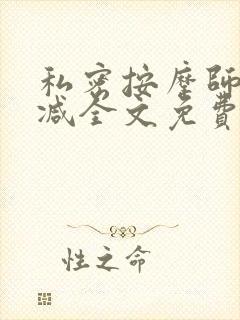 私密按摩師
减全文免費
性之命